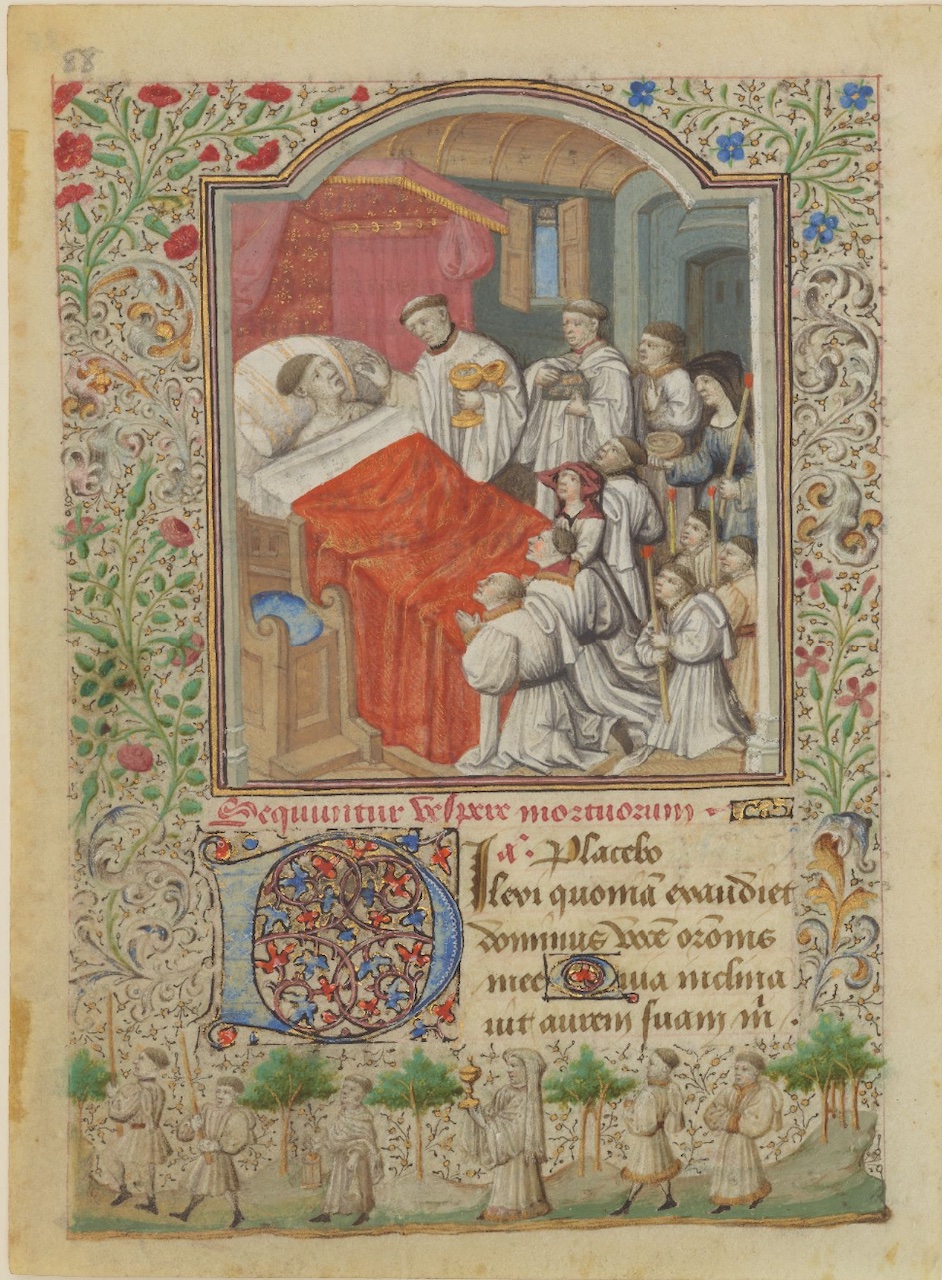 88
Sequuntur vespere mortuorum
a͞. Placebo
Ilexi quoniā exaudiet
dominus vocē orōnis
mee Quia inclina
uit aurem suam m̄